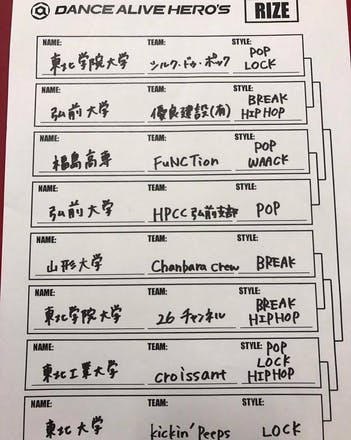 DANCE ALIVE HERO'S
RIZE
NAME: TEAM: STYLE:
東北学院大学 シルク・ドゥ・ポック POP
LOCK
NAME: TEAM: STYLE:
弘前大学 優良建設(有) BREAK
HIPHOP
NAME: TEAM: STYLE:
福島高専 FuNCTion POP
WAACK
NAME: TEAM: STYLE:
弘前大学 HPCC弘前支部 POP
NAME: TEAM: STYLE:
山形大学 Chanbara crew BREAK
NAME: TEAM: STYLE:
東北学院大学 26チャンネル BREAK
HIPHOP
NAME: TEAM: STYLE:
東北工業大学 croissant POP
LOCK
HIPHOP
NAME: TEAM: STYLE:
東北大学 kickin' Peeps LOCK